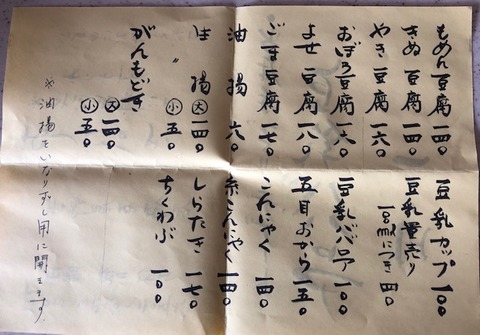 もめん豆腐 一四〇
きぬ豆腐 一四〇
やき豆腐 一六〇
おぼろ豆腐
よせ豆腐 一八〇
ごま豆腐 一七〇
油揚 六〇
生揚 大 一四〇
〃 小 五〇
がんもどき
大 一四〇
小 五〇
豆乳カップ 一〇〇
豆乳量売り
100mlにつき 四〇
豆乳ババロア 一〇〇
五目おから 一五〇
こんにゃく 一四〇
糸こんにゃく 一四〇
しらたき 一七〇
ちくわぶ 一〇〇
※油揚をいなりずし用に開きます